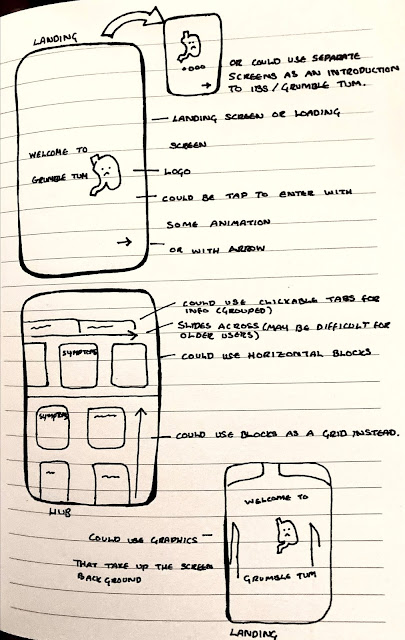 LANDING
OR COULD USE SEPARATE
SCREENS AS AN INTRODUCTION
TO IBS / GRUMBLE TUM.
LANDING SCREEN OR LOADING
SCREEN
WELCOME TO
GRUMBLE TUM
LOGO
COULD BE TAP TO ENTER WITH
SOME ANIMATION
OR WITH ARROW
COULD USE CLICKABLE TABS FOR
INFO (GROUPED)
SLIDES ACROSS (MAY BE DIFFICULT FOR
OLDER USERS)
COULD USE HORIZONTAL BLOCKS
SYMPTOMS
SYMPTOMS
COULD USE BLOCKS AS A GRID INSTEAD.
HUB
WELCOME TO
GRUMBLE TUM
COULD USE GRAPHICS
THAT TAKE UP THE SCREEN
BACKGROUND
LANDING